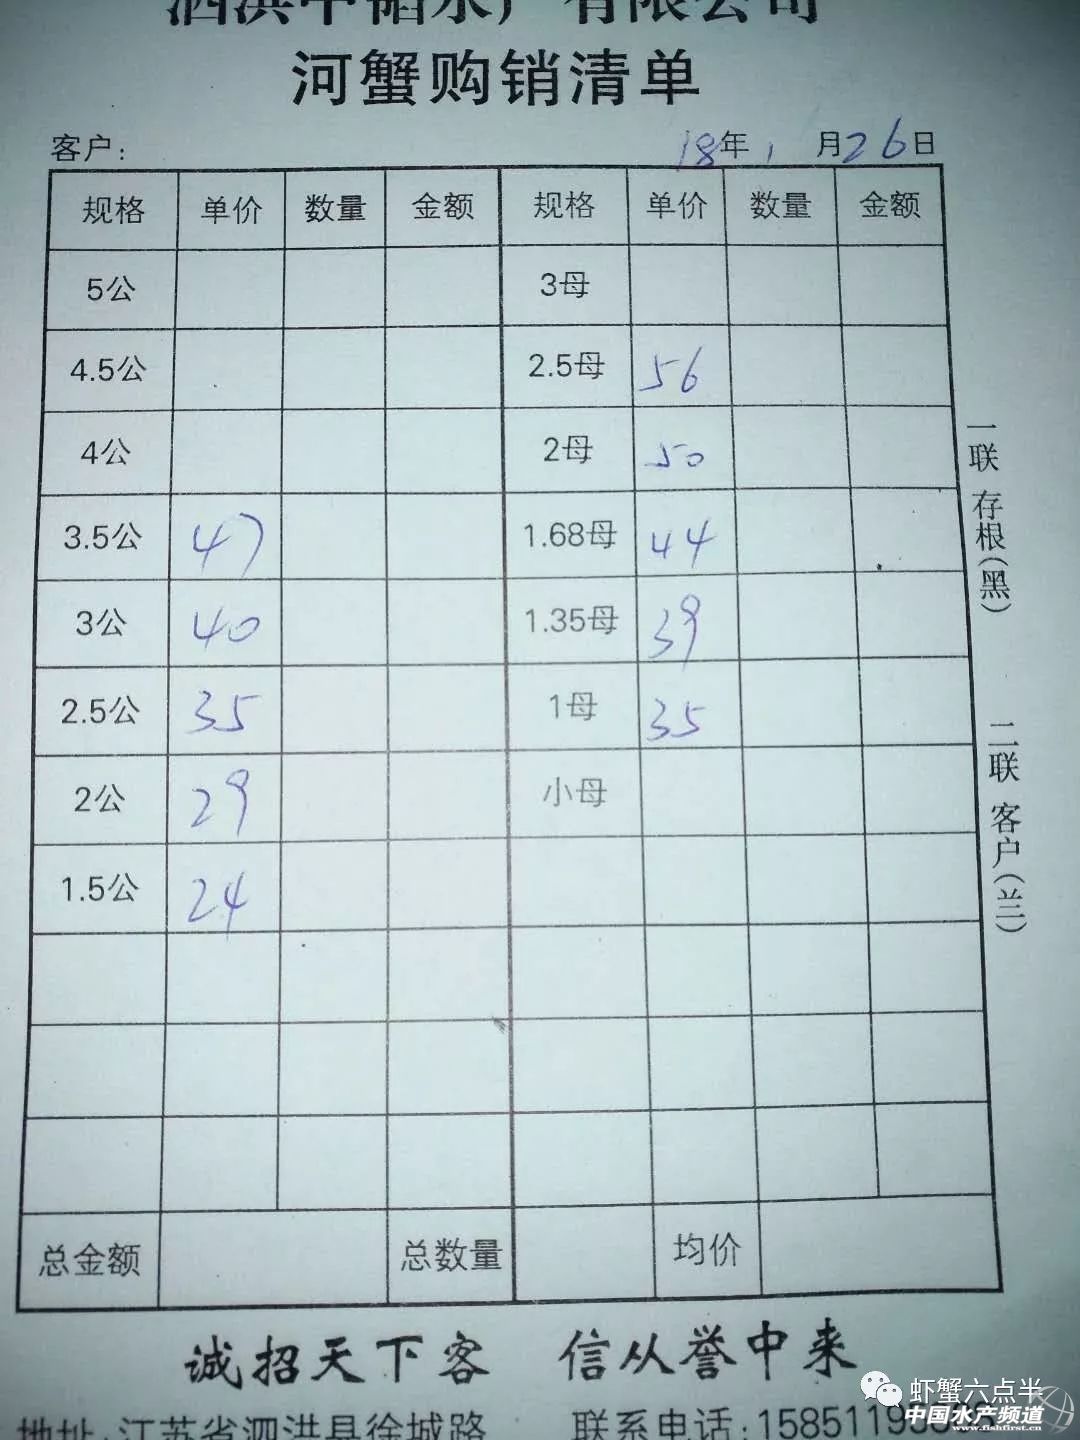 河蟹购销清单
客户： 18年1月26日
规格 单价 数量 金额 规格 单价 数量 金额
5公 3母
4.5公 2.5母 56
4公 2母 50
3.5公 47 1.68母 44
3公 40 1.35母 39
2.5公 35 1母 35
2公 29 小母
1.5公 24
总金额 总数量 均价
一联 存根(黑)
二联 客户(兰)
诚招天下客 信从誉中来
虾蟹六点半
地址:江苏省泗洪县徐城路 联系电话:158511
中国水产频道
www.fishfirst.cn